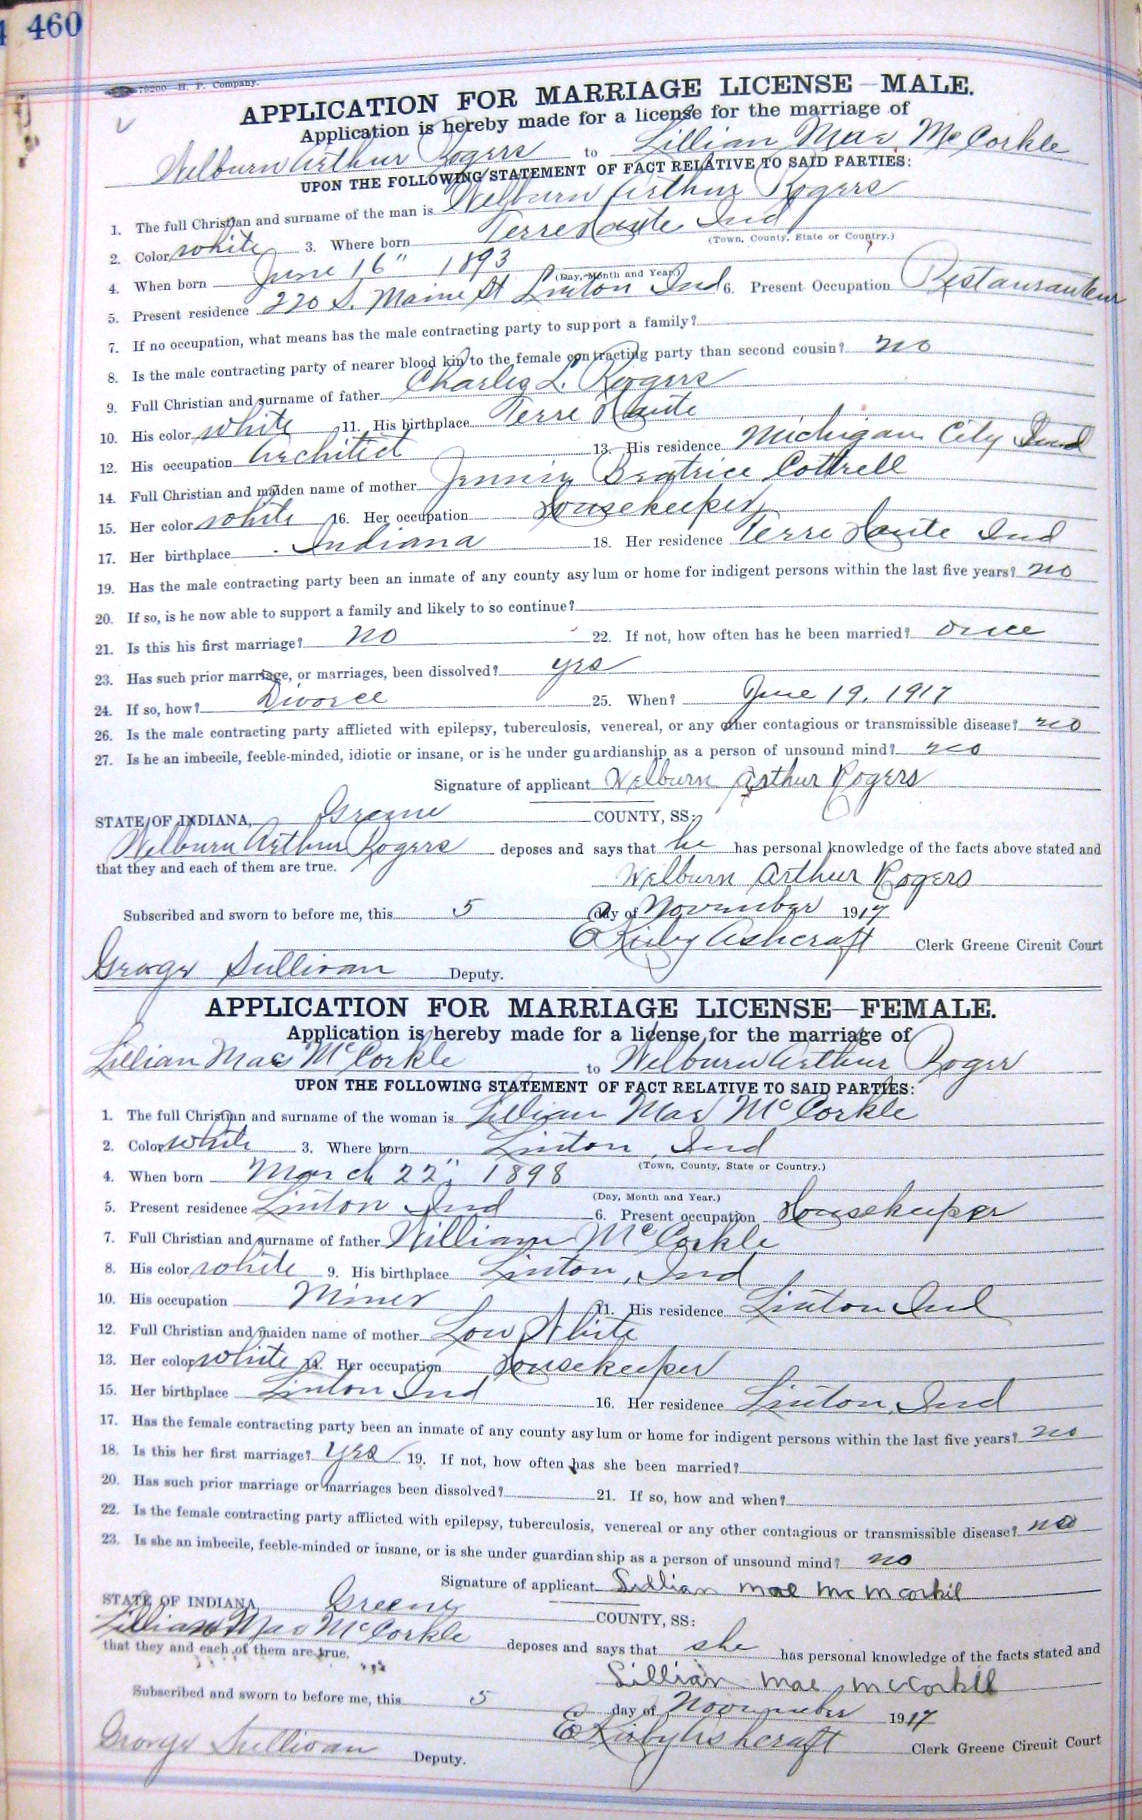 460
79200—H. P. Company.
APPLICATION FOR MARRIAGE LICENSE—MALE.
Application is hereby made for a license for the marriage of
Welburn Arthur Rogers to Lillian Mae McCorkle
UPON THE FOLLOWING STATEMENT OF FACT RELATIVE TO SAID PARTIES:
1. The full Christian and surname of the man is Welburn Arthur Rogers
2. Color white 3. Where born Terre Haute Ind
(Town, County, State or Country.)
4. When born June 16" 1893
(Day, Month and Year.)
5. Present residence 220 S. Maine St Linton Ind 6. Present Occupation Restauranteur
7. If no occupation, what means has the male contracting party to support a family?
8. Is the male contracting party of nearer blood kin to the female contracting party than second cousin? no
9. Full Christian and surname of father Charles L. Rogers
10. His color white 11. His birthplace Terre Haute
12. His occupation Architict 13. His residence Michigan City Ind
14. Full Christian and maiden name of mother Jennie Beatrice Cottrell
15. Her color white 16. Her occupation Housekeeper
17. Her birthplace Indiana 18. Her residence Terre Haute Ind
19. Has the male contracting party been an inmate of any county asylum or home for indigent persons within the last five years? no
20. If so, is he now able to support a family and likely to so continue?
21. Is this his first marriage? no 22. If not, how often has he been married? once
23. Has such prior marriage, or marriages, been dissolved? yes
24. If so, how? Divorce 25. When? June 19, 1917
26. Is the male contracting party afflicted with epilepsy, tuberculosis, venereal, or any other contagious or transmissible disease? no
27. Is he an imbecile, feeble-minded, idiotic or insane, or is he under guardianship as a person of unsound mind? no
Signature of applicant Welburn Arthur Rogers
STATE OF INDIANA, Greene COUNTY, SS:
Welburn Arthur Rogers deposes and says that he has personal knowledge of the facts above stated and
that they and each of them are true.
Welburn Arthur Rogers
Subscribed and sworn to before me, this 5 day of November 1917
E Kirby Ashcraft Clerk Greene Circuit Court
George Sullivan Deputy.
APPLICATION FOR MARRIAGE LICENSE—FEMALE.
Application is hereby made for a license for the marriage of
Lillian Mae McCorkle to Welburn Arthur Roger
UPON THE FOLLOWING STATEMENT OF FACT RELATIVE TO SAID PARTIES:
1. The full Christian and surname of the woman is Lillian Mae McCorkle
2. Color white 3. Where born Linton, Ind
(Town, County, State or Country.)
4. When born March 22", 1898
(Day, Month and Year.)
5. Present residence Linton Ind 6. Present occupation Housekeeper
7. Full Christian and surname of father William McCorkle
8. His color white 9. His birthplace Linton, Ind
10. His occupation Miner 11. His residence Linton Ind
12. Full Christian and maiden name of mother Lou White
13. Her color white 14. Her occupation Housekeeper
15. Her birthplace Linton Ind 16. Her residence Linton, Ind
17. Has the female contracting party been an inmate of any county asylum or home for indigent persons within the last five years? no
18. Is this her first marriage? yes 19. If not, how often has she been married?
20. Has such prior marriage or marriages been dissolved? 21. If so, how and when?
22. Is the female contracting party afflicted with epilepsy, tuberculosis, venereal or any other contagious or transmissible disease? no
23. Is she an imbecile, feeble-minded or insane, or is she under guardianship as a person of unsound mind? no
Signature of applicant Lillian mae mc mcorkil
STATE OF INDIANA, Greene COUNTY, SS:
Lillian Mae McCorkle deposes and says that she has personal knowledge of the facts stated and
that they and each of them are true.
Lillian mae mcCorkll
Subscribed and sworn to before me, this 5 day of November 1917
E Kirby Ashcraft Clerk Greene Circuit Court
George Sullivan Deputy.